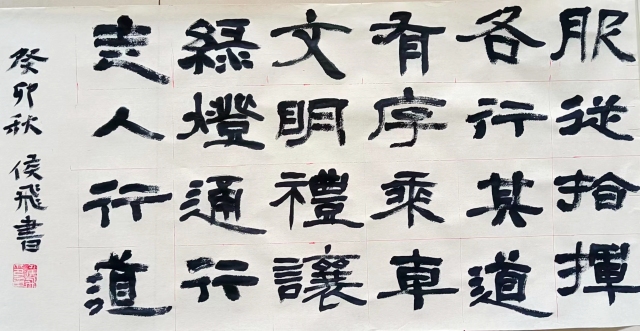 服從指揮
各行其道
有序乘車
文明禮讓
綠燈通行
走人行道
癸卯秋 侯飛書